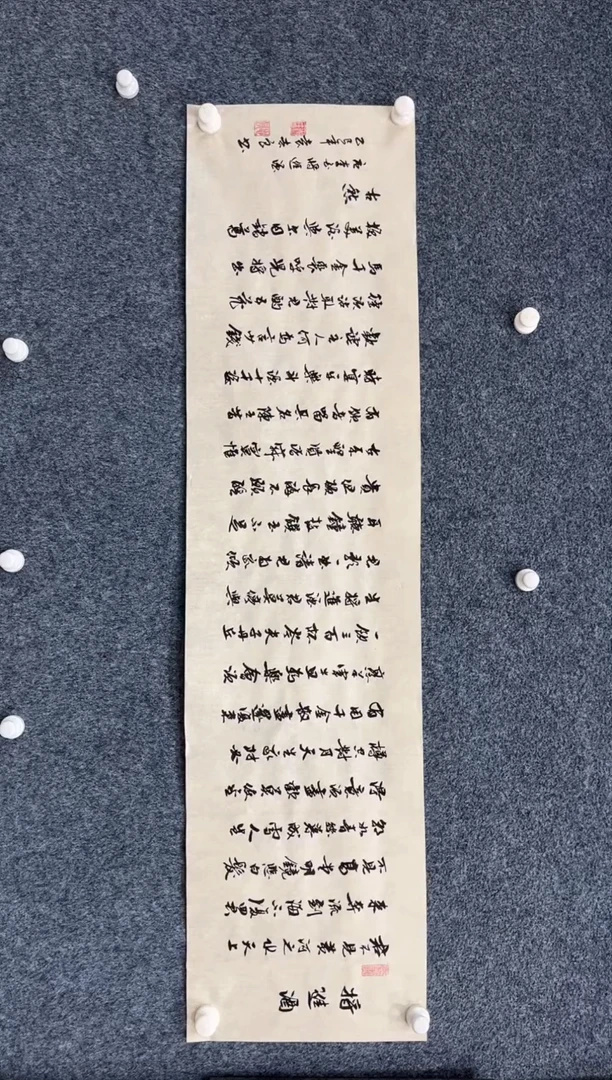 將進酒
君不見黃河之水天上
來奔流到海不復回君
不見高堂明鏡悲白髮
朝如青絲暮成雪人生
得意須盡歡莫使金
樽空對月天生我材必
有用千金散盡還復來
烹羊宰牛且為樂會須
一飲三百杯岑夫子丹丘
生將進酒君莫停與
君歌一曲請君為我傾
耳聽鐘鼓饌玉不足
貴但願長醉不願醒
古來聖賢皆寂寞惟
有飲者留其名陳王昔
時宴平樂斗酒十千恣
歡謔主人何為言少錢
徑須沽取對君酌五花
馬千金裘呼兒將出
換美酒與爾同銷萬
古愁
李白將進酒
乙巳年